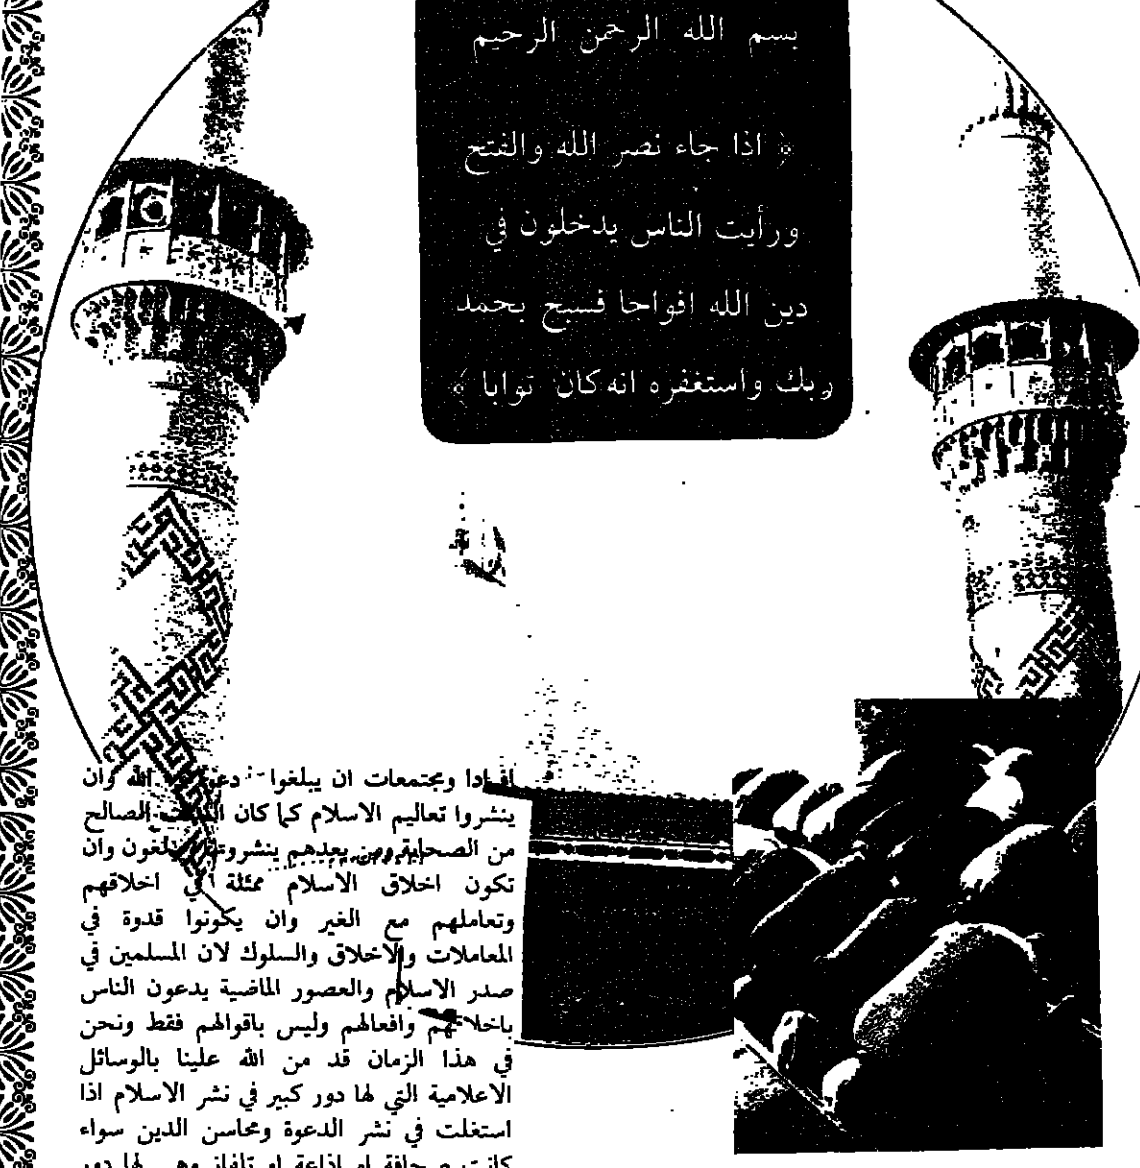 بسم الله الرحمن الرحيم
﴿ اذا جاء نصر الله والفتح
ورأيت الناس يدخلون في
دين الله افواجا فسبح بحمد
ربك واستغفره انه كان توابا ﴾
افرادا ومجتمعات ان يبلغوا الله وان
ينشروا تعاليم الاسلام كما كان الصالح
من الصحابة ومن بعدهم وان
تكون اخلاق الاسلام ممثلة في اخلاقهم
وتعاملهم مع الغير وان يكونوا قدوة في
المعاملات والاخلاق والسلوك لان المسلمين في
صدر الاسلام والعصور الماضية يدعون الناس
باخلاقهم وافعالهم وليس باقوالهم فقط ونحن
في هذا الزمان قد من الله علينا بالوسائل
الاعلامية التي لها دور كبير في نشر الاسلام اذا
استغلت في نشر الدعوة ومحاسن الدين سواء
كانت صحافة او اذاعة او تلفاز وهي لها دور